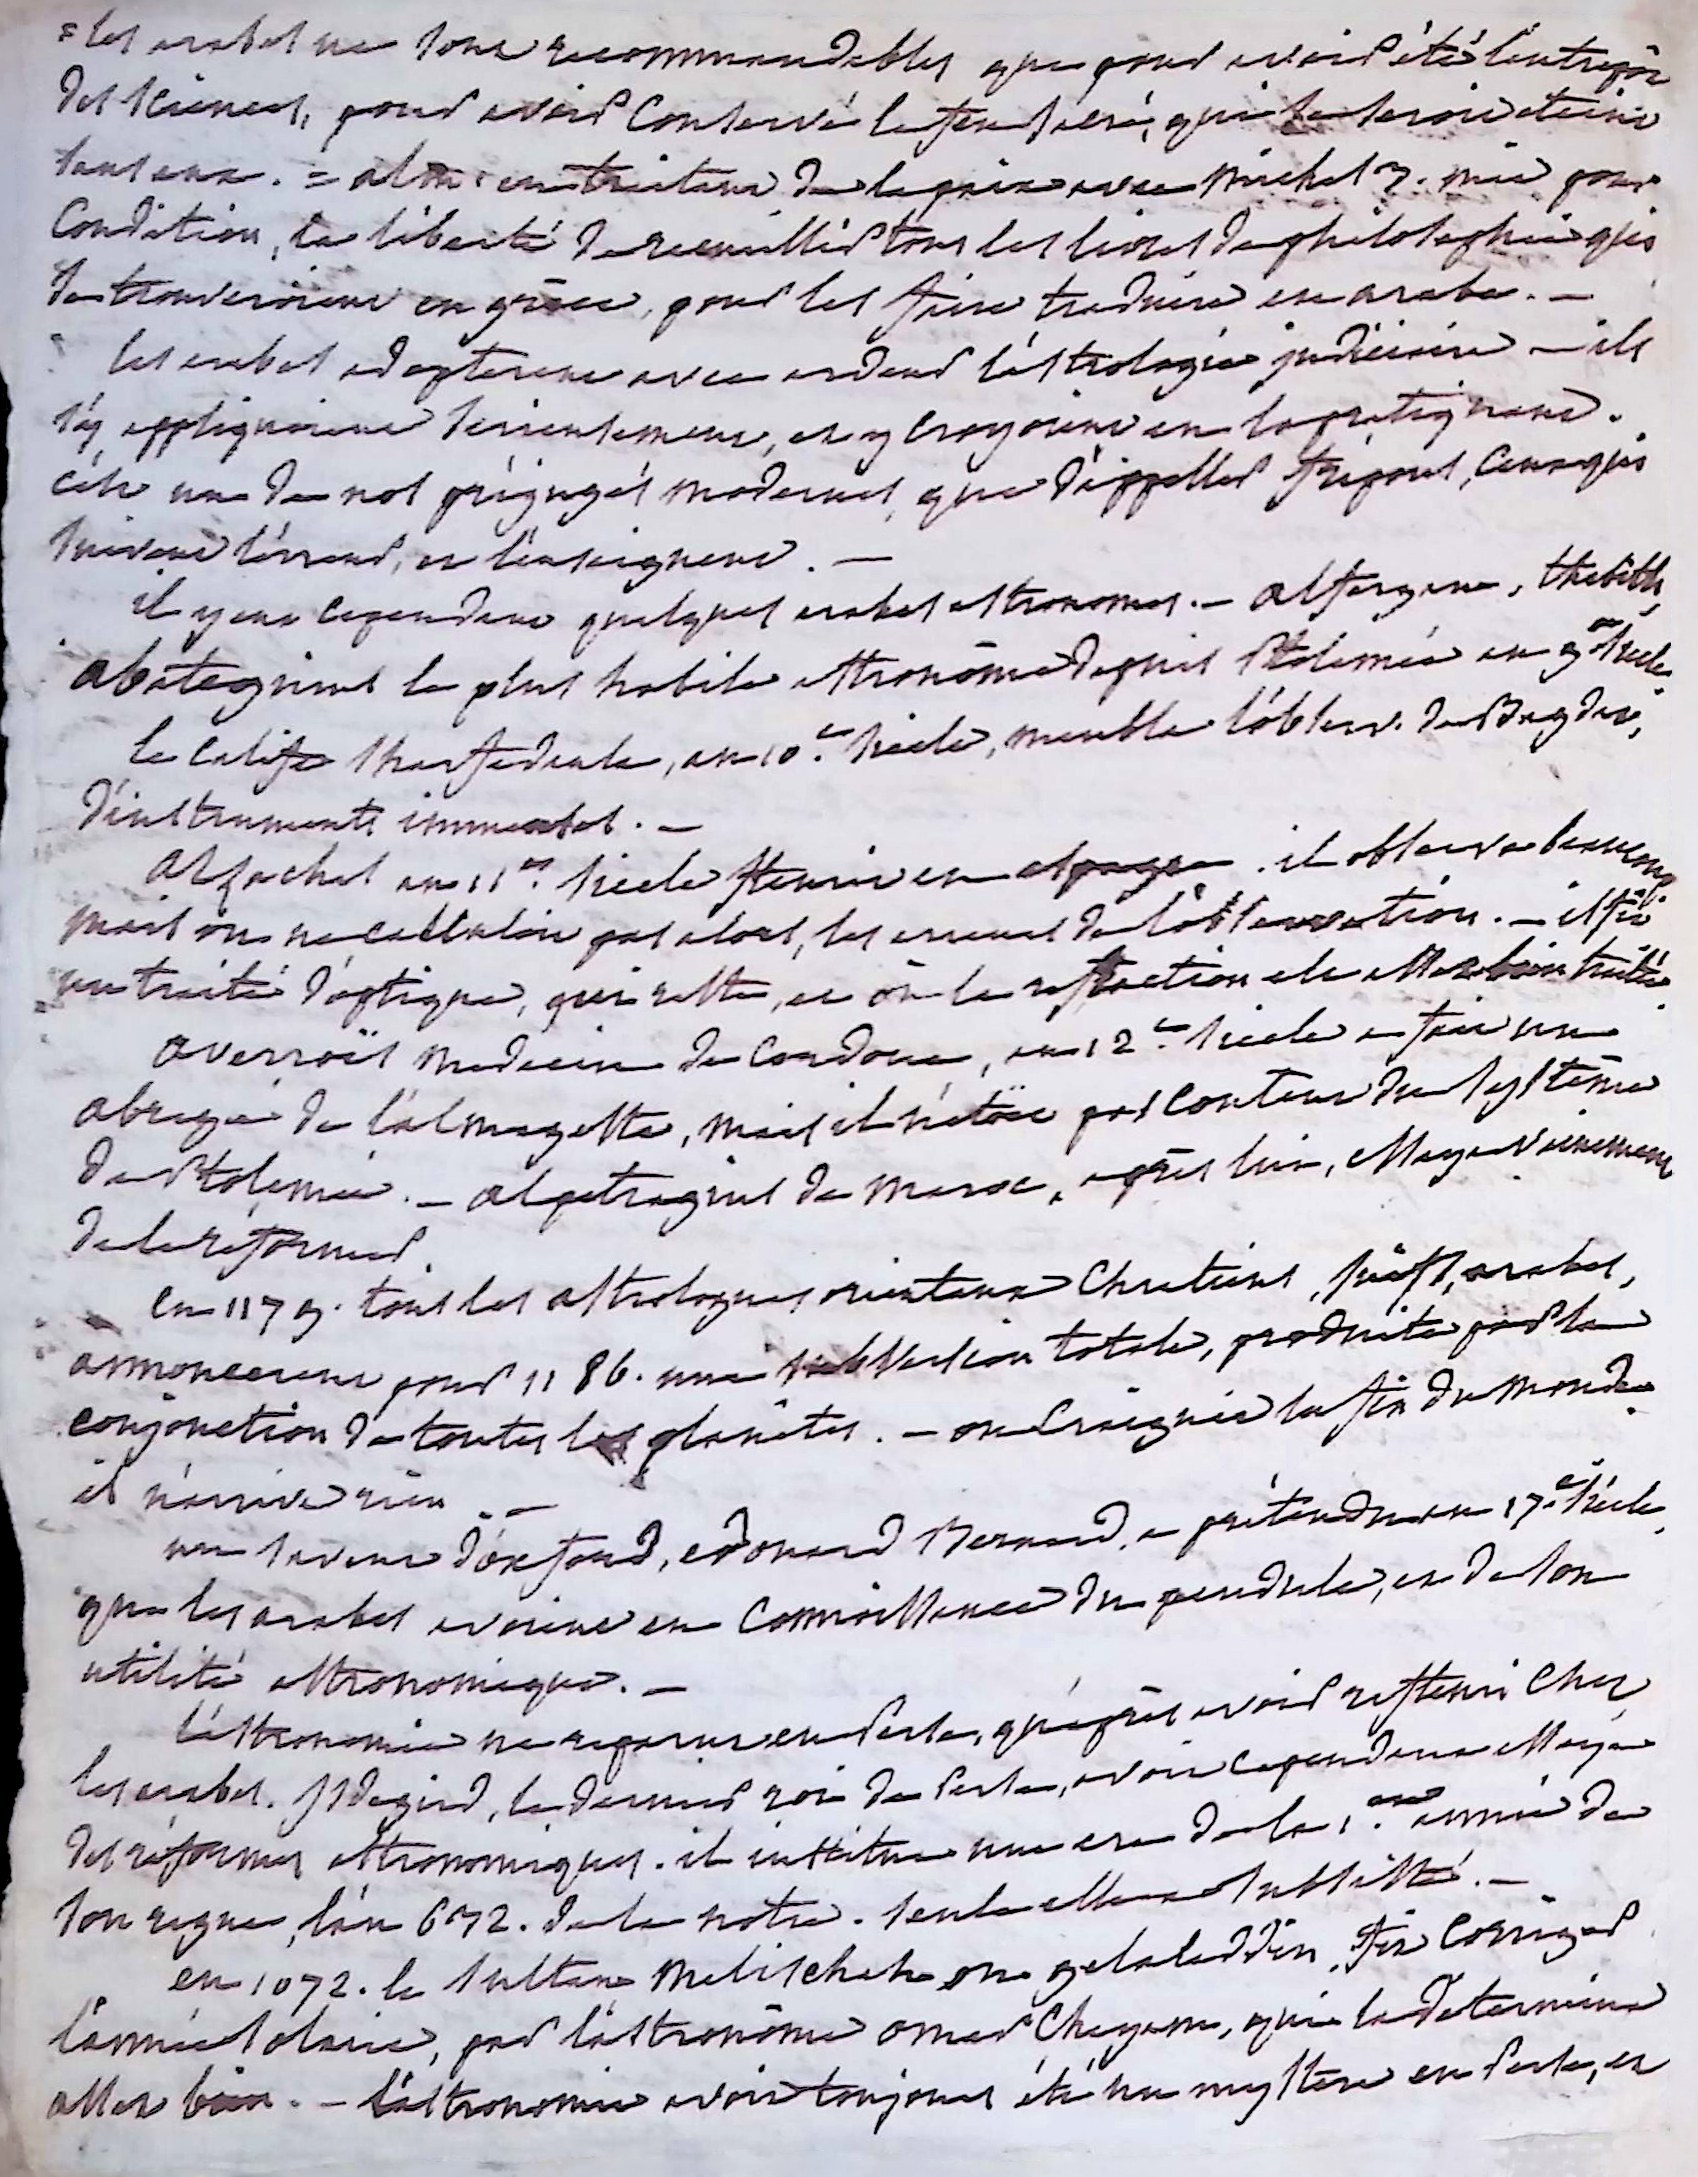 = les arabes ne sont recommandables que pour avoir été l'entrepôt
des sciences, pour avoir conservé le feu sacré, qui se seroit éteint
sans eux. = almon en traitant de la paix avec michel 3. mit pour
condition, la liberté de recueillir tous les livres de philosophie qui
se trouveroient en grèce, pour les faire traduire en arabe. —
les arabes adopterent avec ardeur l'astrologie judiciaire — ils
s'y appliquoient serieusement, et y croyoient en la pratiquant.
c'est un de nos préjugés modernes, que d'appeller fripons, ceux qui
suivent l'erreur, et l'enseignent. —
il y eut cependant quelques arabes astronomes. — alfergane, thebith,
abategnius le plus habile astronôme depuis Ptolemée au 9.e siecle.
le calife Sharfedaula, au 10.e siecle, meubla l'observ. de Bagdad,
d'instruments immenses. —
arzachel au 11.e siecle fleurit en espagne. il observa beaucoup
mais on ne calculoit pas alors, les erreurs de l'observation. — il fit
un traité d'optique, qui reste, et où la refraction est assez bien traitée.
averroës medecin de Cordoue, au 12.e siecle a fait un
abregé de l'almageste, mais il n'étoit pas content du systême
de Ptolemée. — alpetragius de maroc, après lui, essaya vainement
de le reformer.
en 1179. tous les astrologues orientaux chretiens, juifs, arabes,
annoncerent pour 1186. une subversion totale, produite par la
conjonction de toutes les planêtes. — on craignit la fin du monde.
il n'arriva rien. —
un savant d'oxford, edouard Bernard, a prétendu au 17.e siecle,
que les arabes avoient eu connoissance du pendule, et de son
utilité astronomique. —
l'astronomie ne reparut en Perse, qu'après avoir refleuri chez
les arabes. Isdegird, le dernier roi de Perse, avoit cependant essayé
des réformes astronomiques. il institua une ere de la 1.ere année de
son regne, l'an 632. de la notre. seule elle a subsisté. —
en 1072. le sultan Melischah ou gelaleddin, fit corriger
l'année solaire, par l'astronôme omar Cheyam, qui la determina
assez bien. — l'astronomie avoit toujours été un mystere en Perse, et